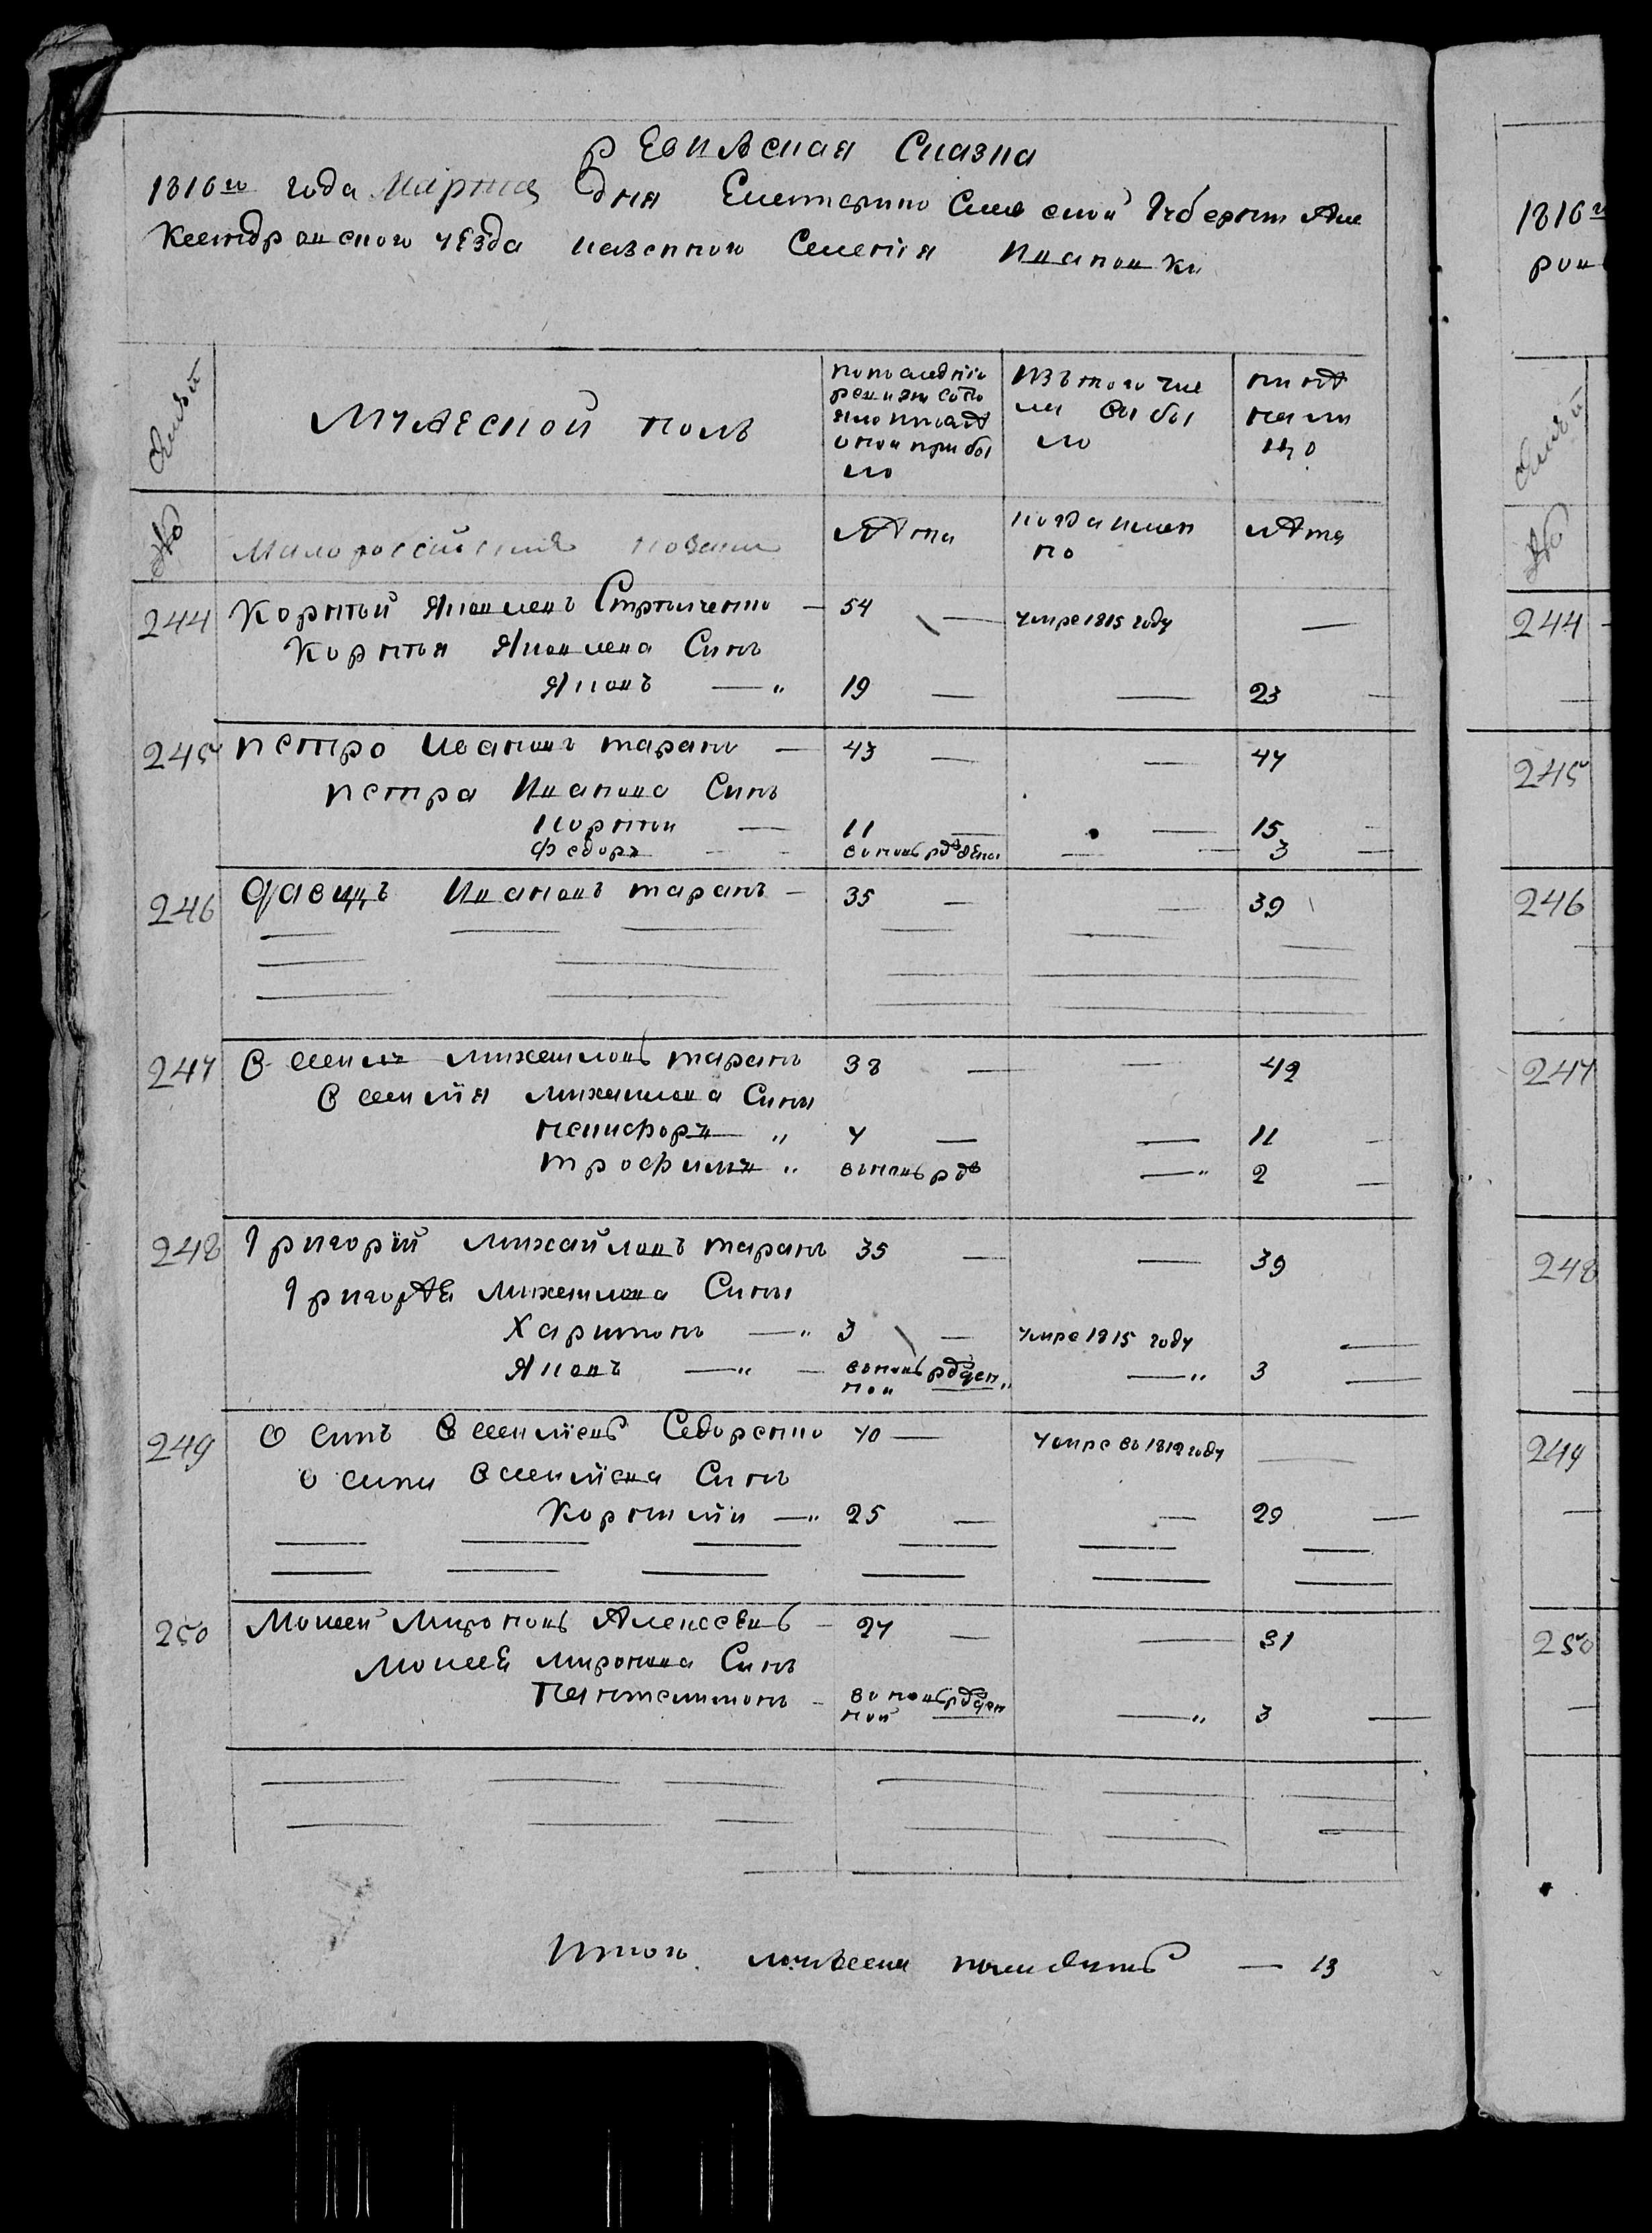 Ревижская Сказка
1816го года Марта дня Екатерино Славской Губернии Але
Ксандровского уезда казенного Селения Ивановки
Семьи
Мужеской полъ
по последней ревизии состояло и после оной прибыло
Изъ того числа выбыло
ныне на лицо
№
Малороссийские козаки
лѣта
когда имянно
лѣта
244 Корнѣй Яковлевъ — 54 — умре 1815 году —
Корнѣя Яковлева Сынъ
Яковъ — 19 — — 23
245 петро Ивановъ таранъ — 43 — — 47
петра Иванова Сынъ
Корнѣй — 11 — — 15
федоръ — — 3
246 Давидъ Ивановъ таранъ — 35 — — 39
247 Василь михайловъ таранъ 38 — — 42
Василия михайлова Сыны
никифоръ „ 7 — — 11
трофимъ „ вновь рд — 2
248 Григорїй михайловъ таранъ 35 — — 39
Григорѣя михайлова Сыны
Харитонъ — 3 — умре 1815 году —
Яковъ — вновь рожден ной — 3
249 Осипъ Василїевъ Седоренко 40 — умре въ 1812 году —
Осипа Василїева Сынъ
Корнилїй — 25 — — 29
250 Моисей Мироновъ Алексеевъ — 27 — — 31
Моисея миронова Сынъ
Пантелимонъ — вновь рожден ной — 3
Итого мужеска — 13
1816го
244
245
246
247
248
249
250